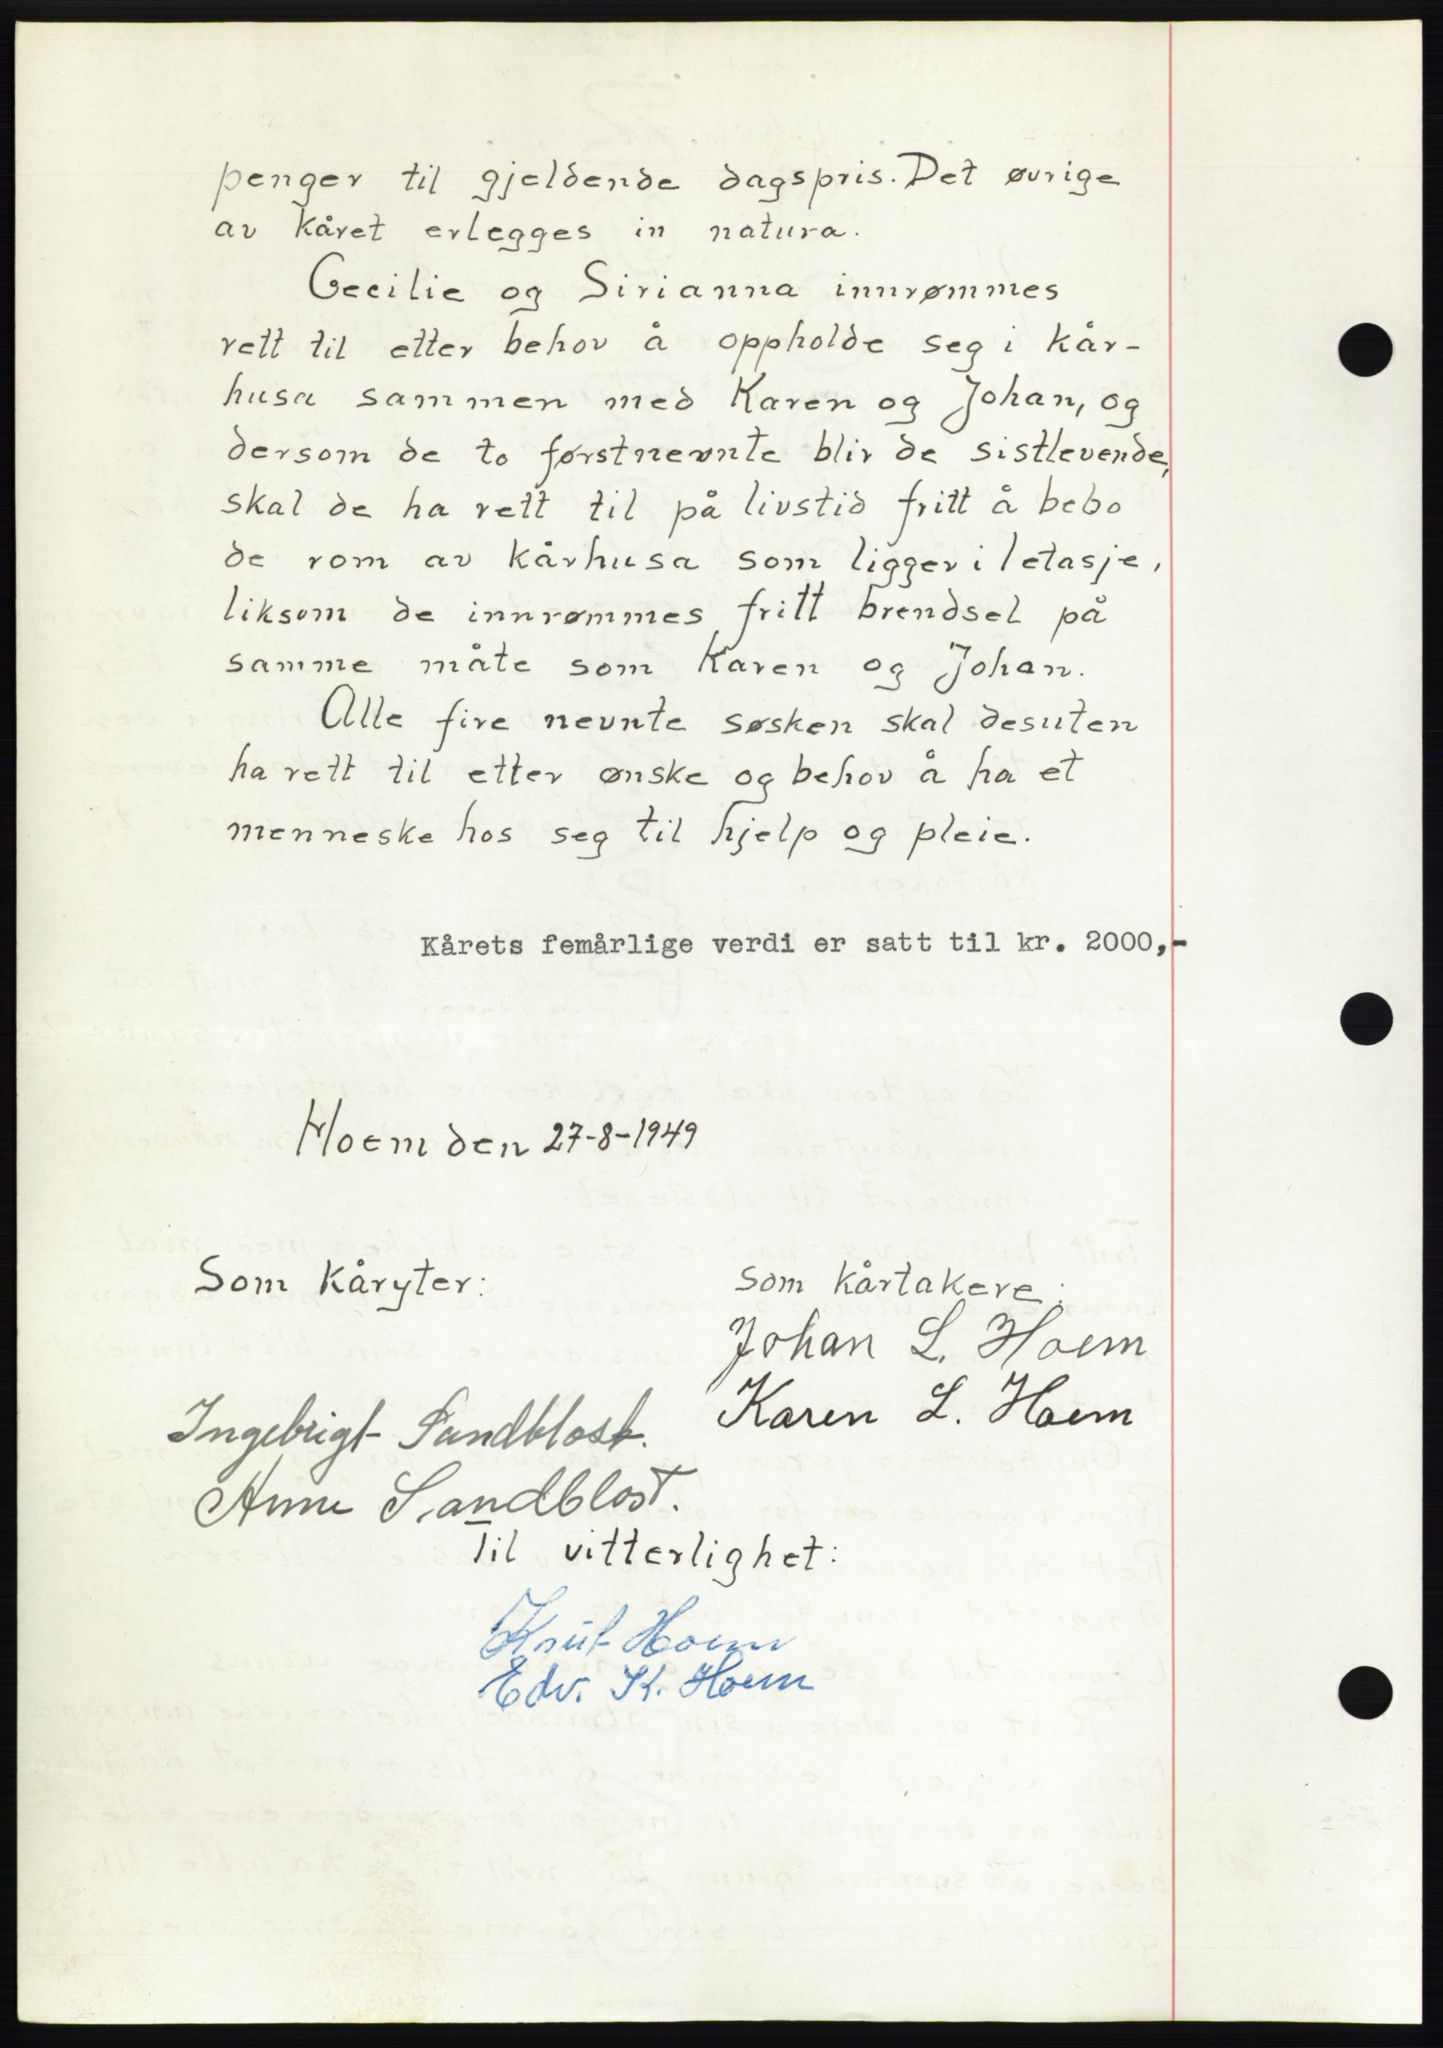 penger til gjeldende dagspris. Det øvrige
av kåret erlegges in natura.
Cecilie og Sirianna innrømmes
rett til etter behov å oppholde seg i kår-
husa sammen med Karen og Johan, og
dersom de to førstnevnte blir de sistlevende,
skal de ha rett til på livstid fritt å bebo
de rom av kårhusa som ligger i 1 etasje,
liksom de innrømmes fritt brendsel på
samme måte som Karen og Johan.
Alle fire nevnte søsken skal desuten
ha rett til etter ønske og behov å ha et
menneske hos seg til hjelp og pleie.
Kårets femårlige verdi er satt til kr. 2000,-
Hoem den 27-8-1949
Som kåryter:
som kårtakere:
Johan L. Hoem
Karen L. Hoem
Ingebrigt Sandblost.
Anne Sandblost.
Til vitterlighet:
Knut Hoem
Edv. K. Hoem